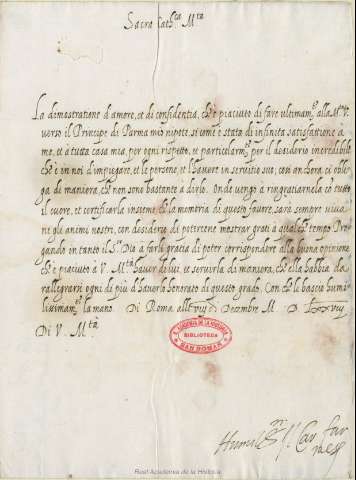 Sacra Cath.ca M.tà
La demostratione d'amore, et di confidentia, ch'è piaciuto di fare ultimam.te alla M.tà V.
verso il Principe di Parma mio nipote, si come è stata di infinita satisfattione à
me, et à tutta casa mia, per ogni rispetto, et particolarm.te per il desiderio incredibile
ch'è in noi d'impiegare, et le persone, et l'havere in servitio suo; così anchora ci obli
ga di maniera, che non sono bastante à dirlo. Onde vengo à ringratiarnela co tutto
il cuore, et certificarla insieme che la memoria di questo favore, sarà sempre viva
ne gli animi nostri, con desiderio di potercene mostrar grati à qualche tempo. Pre
gando in tanto il S.re Dio à farli gratia di poter corrispondere alla buona opinione
ch'è piaciuto à V. M.tà haver di lui, et servirla di maniera, ch'ella habbia da
rallegrarsi ogni dì più d'haverlo honorato di questo grado. Con che le bascio humi
lissimam.te la mano. Di Roma alli viij di Decembre M. D. Lxxviij
Di V. M.tà
R. ACADEMIA DE LA HISTORIA
BIBLIOTECA
SAN ROMAN
Humil.
Car Far
nese
Real Academia de la Historia